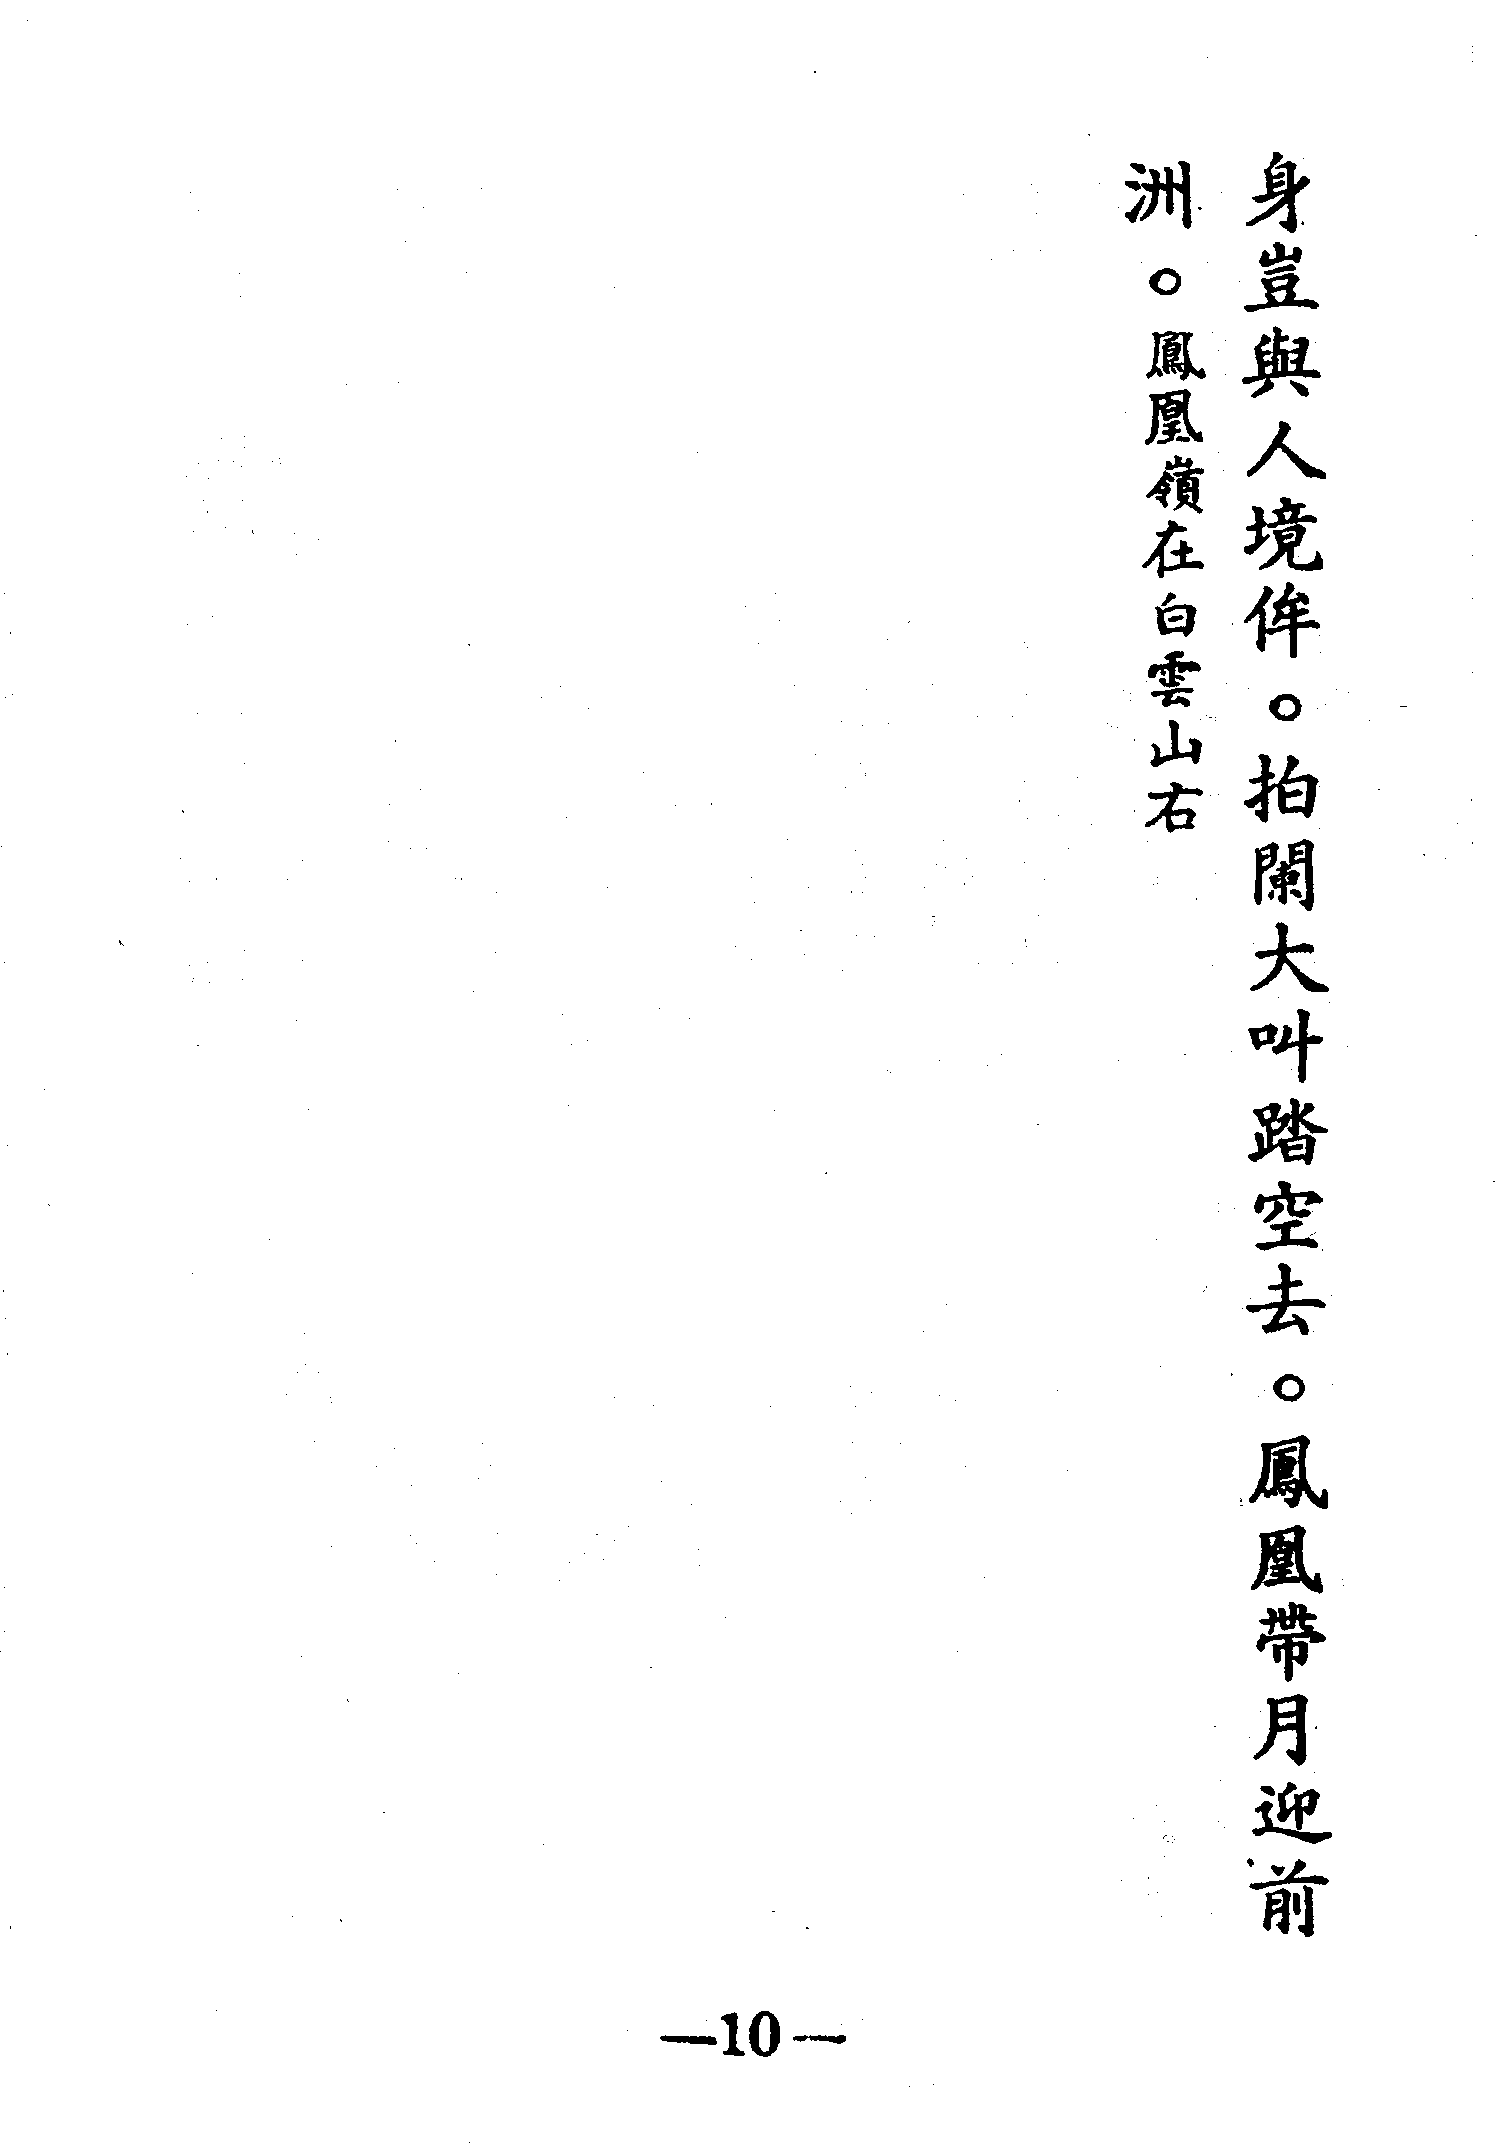 身豈與人境侔。拍闌大叫踏空去。鳳凰帶月迎前
洲。鳳凰嶺在白雲山右
—10—